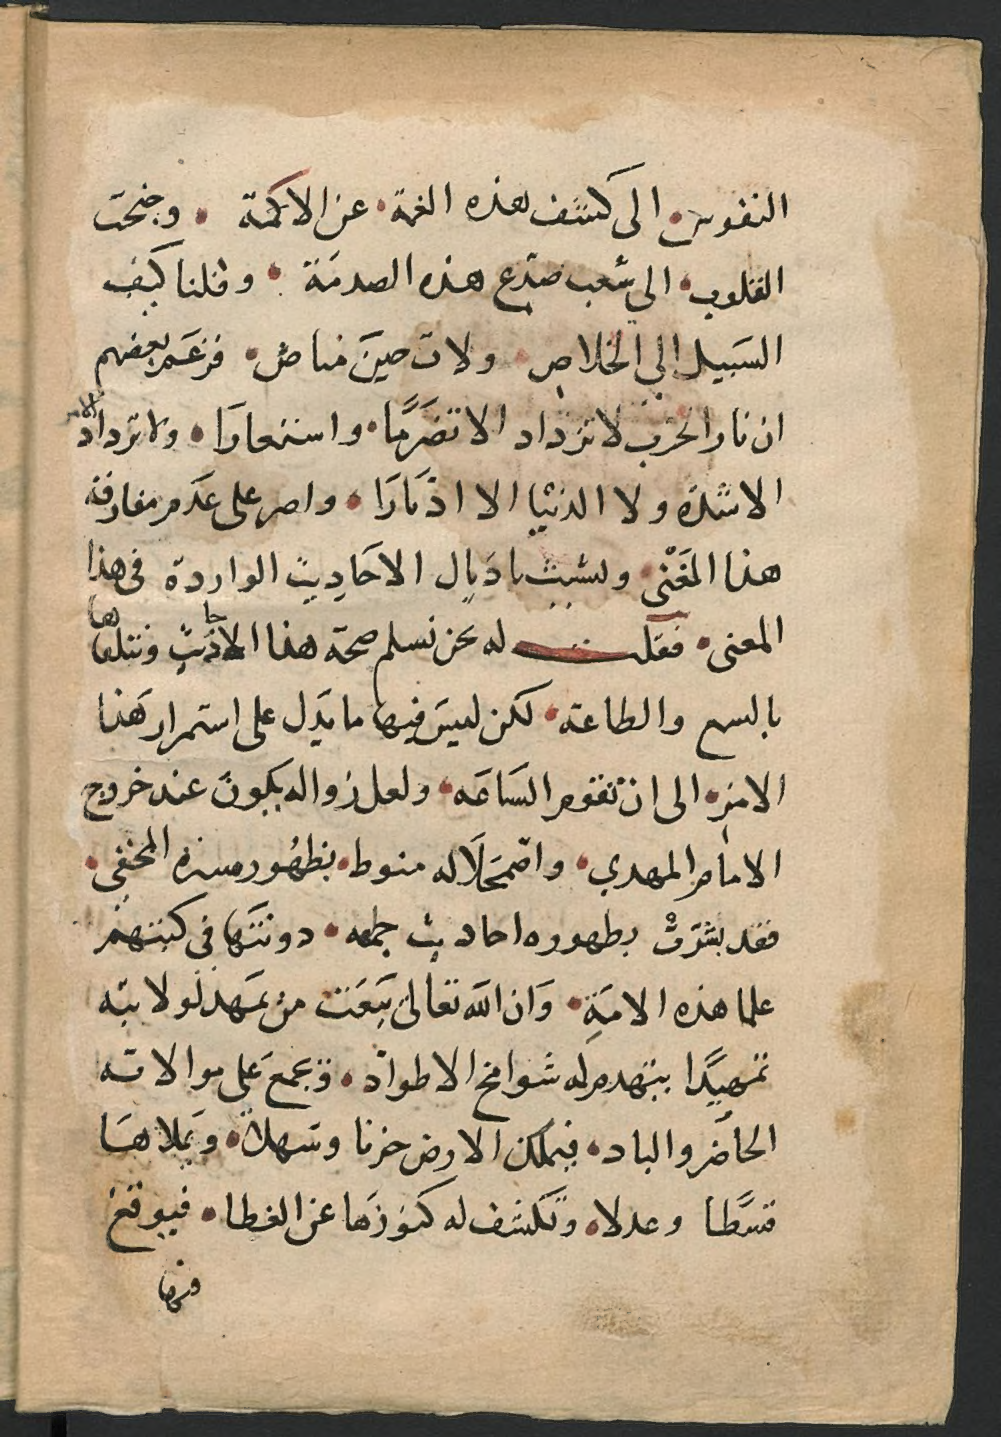 النفوس • الى كشف هذه الغمة • عن الاكمة • وجنحت
القلوب • الى شعب صدع هذه الصدمَة • وقلنا كيف
السَبيل الي الخلاص • ولاتَ حينَ مناص • فزعَم بعضهم
ان نار الحَرب لا تزداد الا تضرمًا • واستعارَا • ولا تزداد الامر
الا شدة ولا الدنيا الا ادبَارَا • واصر على عدَم مفارقة
هذا المَعْنى • وتشبث باديال الاحَاديث الواردة في هذا
المعنى • فقلت له نحن نسلم صحة هذا الاحاديث ونتلقاها
بالسمع والطاعة • لكن ليسَ فيها ما يدَل على استمرار هَذا
الامر • الى ان تقوم السَاعَه • ولعل زواله يكونَ عند خروج
الامام المهدي • واضمحَلَاله منوط • بظهُور سره المخفي •
فقد بشرَتْ بظهوره احاديث جمه • دونتَها في كتبهم
علما هذه الامَةِ • وَان الله تعَالىَ يبَعَث من يمَهد لولايته
تمهيدًا ينهدم له شوامخ الاطوادَ • وَيجمعَ على موالاته
الحاضر والباد • فيملك الارض حزنا وسَهلاً • وَيملاهَا
قسَّطا وعدلا • وَتكشف له كنوزهَا عن الغطا • فيوقع
فيها